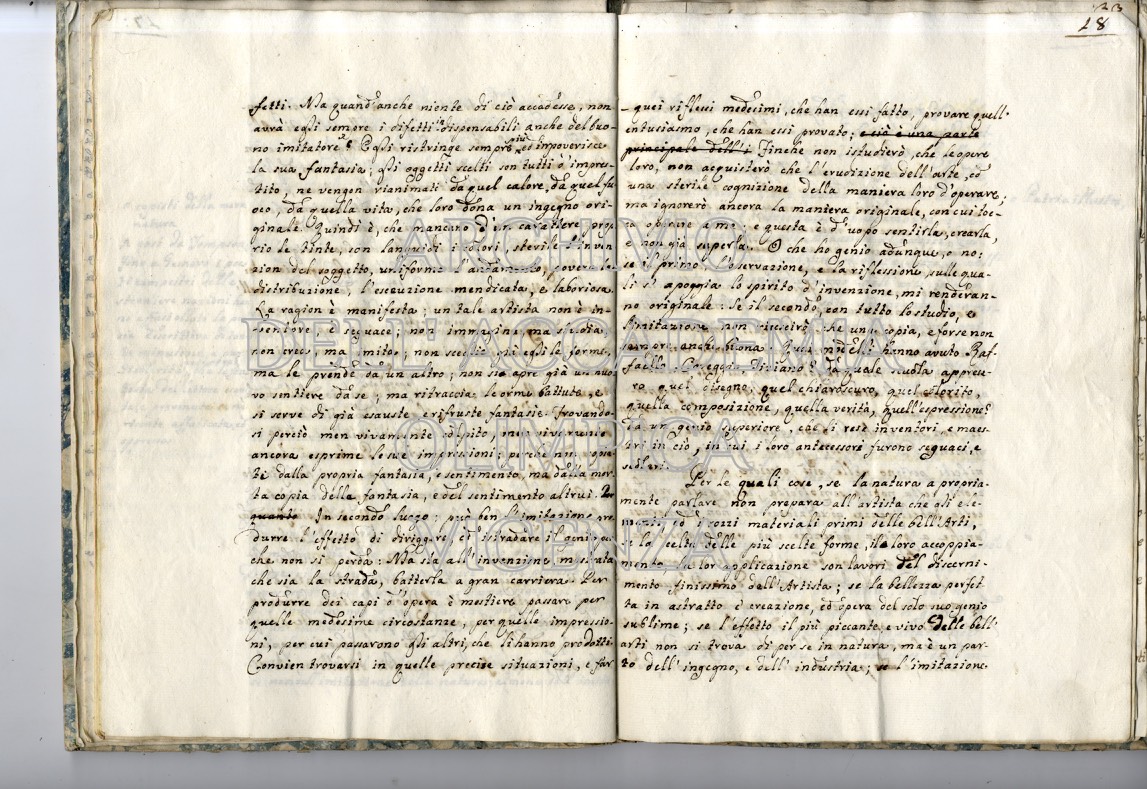 fetti. Ma quand' anche niente di ciò accadesse, non
avrà egli sempre i difetti indispensabili anche del buo-
no imitatore? Egli ristringe sempre più ed impoverisce
la sua fantasia; gli oggetti scelti son tutti d' impres-
tito, ne vengon rianimati da quel calore, da quel fu
oco, da quella vita, che loro dona un ingegno ori-
ginale. Quindi è, che mancano d'un carattere prop
rio le tinte, son languidi i colori, sterile l'inven
zion del soggetto, uniforme l'andamento, povera la
distribuzione, l'esecuzione mendicata, e laboriosa.
La ragion è manifesta; un tale artista non è in-
ventore, è seguace; non immagina, ma studia,
non crea, ma imita; non sceglie già egli le forme,
ma le prende da un altro; non si apre già un nuo
vo sentiere da se; ma ritraccia le orme battute, e
si serve di già esauste e rifruste fantasie. Trovando-
si perciò men vivamente colpito, men vivamente
ancora esprime le sue impressioni; perchè non copia
te dalla propria fantasia, e sentimento, ma dalla mor
ta copia della fantasia, e del sentimento altrui.
quanto In secondo luogo: può ben l'imitazione pro
durre l'effetto di diriggere, ed istradare il genio, per
che non si perda: Ma sia all'invenzione mostrata
che sia la strada, batterla a gran carriera. Per
produrre dei capi d'opera è mestiere passare per
quelle medesime circostanze, per quelle impressio-
ni, per cui passarono gli altri, che li hanno prodotti.
Convien trovarsi in quelle precise situazioni, e far
18
quei riflessi medesimi, che han essi fatto, provare quell'
entusiasmo, che han essi provato; e ciò è una parte
principale dell': Finche non istudierò, che le opere
loro, non acquisterò che l'erudizione dell'arte, ed
una sterile cognizione della maniera loro d'operare;
ma ignorerò ancora la maniera originale, con cui toc-
ca operare a me; e questa è d'uopo sentirla, crearla,
e non già saperla. O che ho genio adunque, o no:
se il primo l'osservazione, e la riflessione sulle qua-
li si appoggia lo spirito d'invenzione, mi renderan-
no originale: Se il secondo, con tutto lo studio, e
l'imitazione non riuscirò che una copia, e forse non
sempre anche buona. Quai modelli hanno avuto Raf-
faello, Coreggio, Tiziano? da quale scuola apprese-
ro quel disegno, quel chiaroscuro, quel colorito,
quella composizione, quella verità, quell'espressione?
Da un genio superiore, che li rese inventori, e maes
tri in ciò, in cui i loro antecessori furono seguaci, e
scolari.
Per le quali cose, se la natura a propria-
mente parlare non prepara all'artista che gli ele-
menti, ed i rozzi materiali primi delle bell'Arti,
se la scelta delle più scelte forme, il loro accoppia-
mento, la lor applicazione son lavori del discerni-
mento finissimo dell'Artista; se la bellezza perfet-
ta in astratto è creazione, ed opera del solo suo genio
sublime; se l'effetto il più piccante, e vivo delle bell'
arti non si trova di per se in natura, ma è un par-
to dell'ingegno, e dell'industria; se l'imitazione
ARCHIVIO
DELL'ACCADEMIA
OLIMPICA
VICENZA